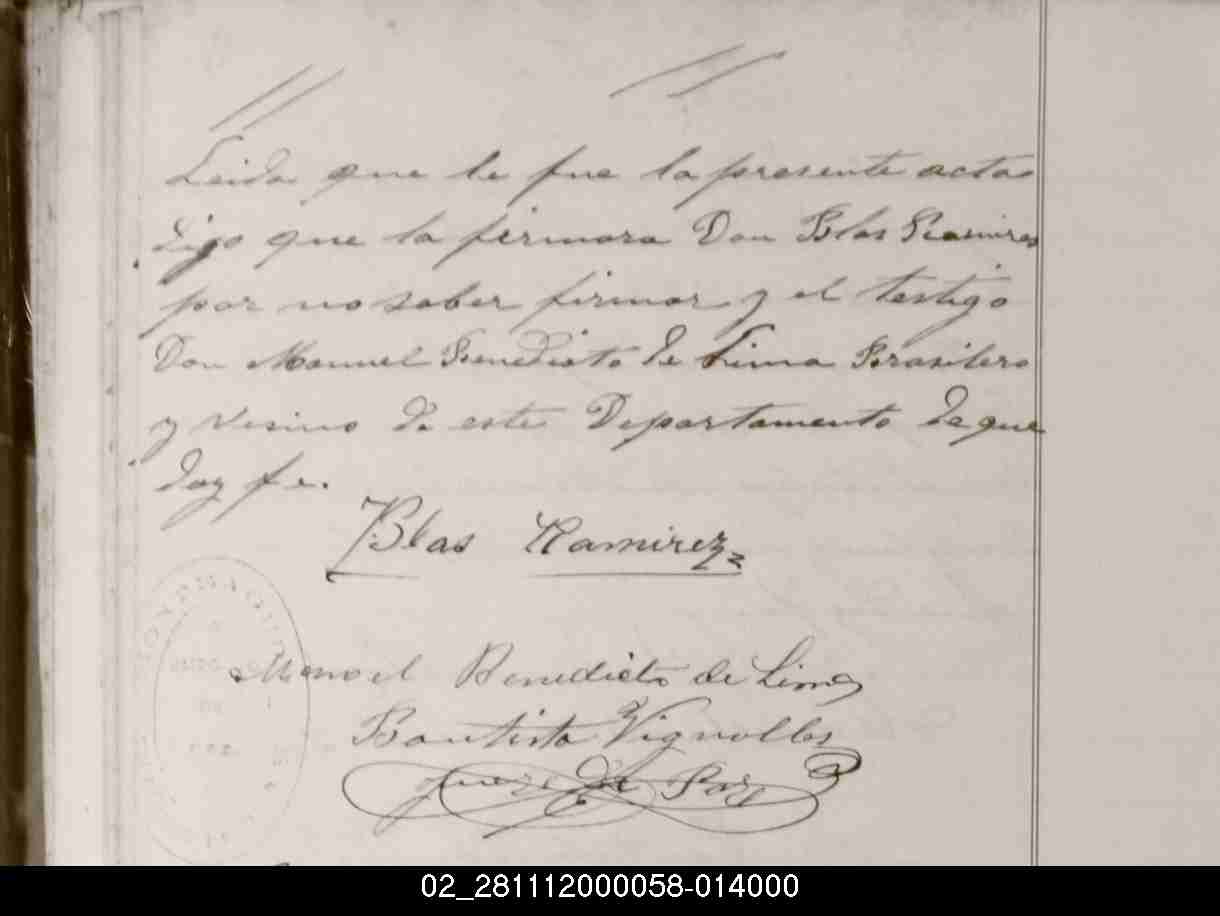 Leida que le fue la presente acta
Digo que la firmara Don Blas Ramires
por no saber firmar y el testigo
Don Manuel Benedicto de Lima Brasilero
y vesino de este Departamento de que
doy fe.
Blas Ramirez
Manoel Benedicto de Lima
Bautista Vignolles
Juez de Paz
02_281112000058-014000